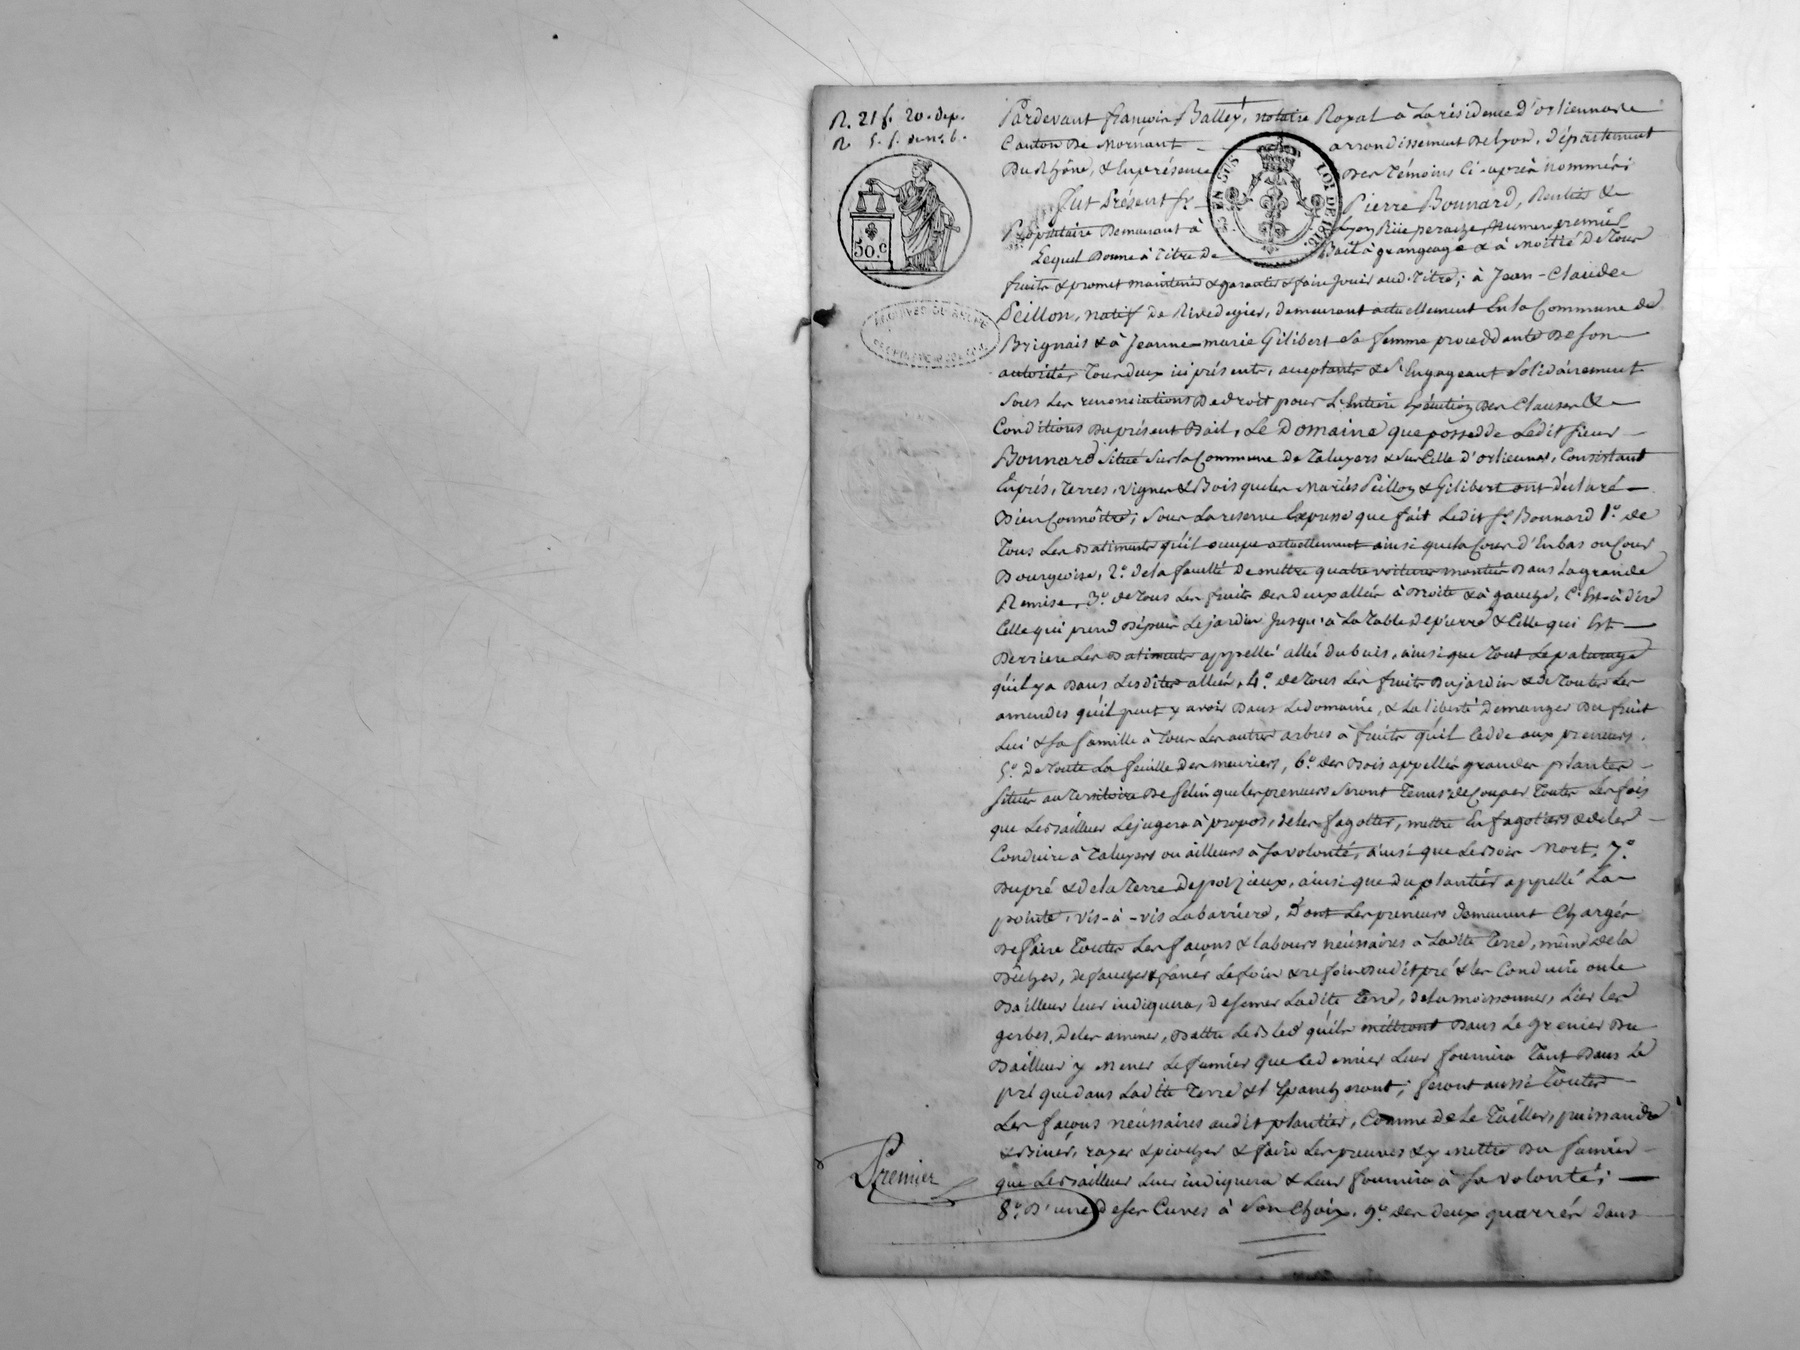 R. 21 f. 20. dep.
R 5. f. de n. 6.
Pardevant françois Balleÿ, notaire Royal à La résidence d'orliennas
Canton De Mornant arrondissement De lyon, Département
Du Rhône, & En présence Des Témoins Ci-après nommés;
Fut Présent sr. Pierre Bonnard, Rentier &
Propriétaire Demeurant à Lyon Rüe peraize, Numero premier
Lequel Donne à Titre de Bail à grangeage & à Moitié De Tous
fruits & promet maintenir & garantir & faire Jouir aud. Titre; à Jean-Claude
Peillon, natif de Rivedegier, demeurant actuellement En la Commune de
Brignais & à Jeanne-marie Gilibert sa femme proceddante De son
autorité, Tous deux ici présents, acceptants & S'Engageant Solidairement
Sous Les renonciations De droit pour L'Entière Exécution Des Clauses &
Conditions Du présent Bail, Le Domaine que possedde Ledit sieur
Bonnard Situé Sur la Commune De Taluyers & Sur Celle d'orliennas, Consistant
En prés, Terres, vignes & Bois que les Mariés Peillon & Gilibert ont déclaré
Bien Connôitre; Sous La reserve Expresse que fait Ledit sr. Bonnard 1.° de
Tous Les Batiments qu'il occupe actuellement ainsi que la Cour d'Enbas ou Cour
Bourgeoise, 2.° de la faculté De mettre quatre voitures montées Dans La grande
Remise, 3.° de Tous Les fruits des deux allées à Droite & à gauche, C'Est-à-dire
Celle qui prend Depuis Le jardin Jusqu'à La Table de pierre & Celle qui Est
Derriere Les Batiments appellée allée du buis, ainsi que Tout Le paturage
qu'il y a Dans Lesdites allées, 4.° de Tous Les fruits Du jardin & de Toutes Les
amendes qu'il peut y avoir Dans Le domaine, & La liberté De manger Du fruit
Lui & sa famille à Tous Les autres arbres à fruits qu'il Cedde aux preneurs,
5.° de Toute La feuille Des meuriers, 6.° des Bois appellés grandes plantes
situés au Territoire De felin que les preneurs Seront Tenus De Couper Toutes Les fois
que Le Bailleur Le jugera à propos, de les fagotter, mettre En fagotiers & de les
Conduire à Taluyers ou ailleurs à sa volonté, ainsi que Le Bois Mort, 7.°
Du pré & de la Terre De poizieux, ainsi que Du plantier appellé La
pointe, vis-à-vis La barrière, Dont Les preneurs demeurent Chargés
De faire Toutes Les façons & labours nécessaires à Ladite Terre, même de la
Bêcher, de faucher & faner Le foin & refoin Dudit pré & les Conduire ou le
Bailleur leur indiquera, de semer Ladite Terre, de la moissonner, Lier les
gerbes, de les amener, Battre Le Bled qu'ils mettront Dans Le grenier Du
Bailleur y mener Le fumier que Ce dernier Leur fournira Tant Dans Le
pré que dans Ladite Terre & l'Epancheront; feront aussi Toutes
Les façons nécessaires audit plantier, Comme de Le Tailler, puissandre
& Biner, rayer & piocher & faire Les preuves & y mettre Du fumier
que Le Bailleur Leur indiquera & Leur fournira à sa volonté;
8.° D'une De ses Cuves à Son Choix, 9.° des deux quarrés dans
Premier
50.C
EN SUS
LOI DE 1816.
ARCHIVES DU RHÔNE